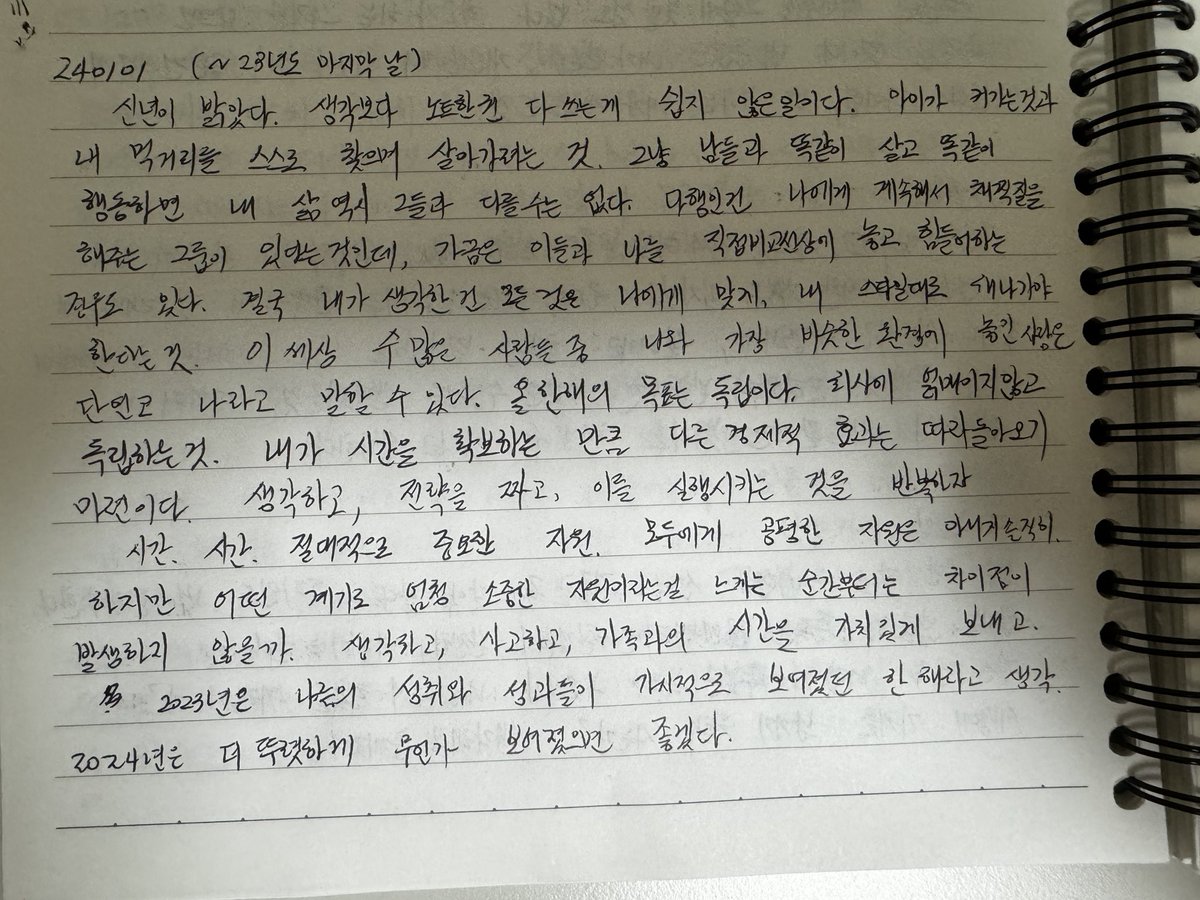 240101 (~23년도 마지막 날)
신년이 밝았다. 생각보다 노트한권 다 쓰는게 쉽지 않은일이다. 아이가 커가는것과
내 먹거리를 스스로 찾으며 살아가려는 것. 그냥 남들과 똑같이 살고 똑같이
행동하면 내 삶 역시 그들과 다를수는 없다. 다행인건 나에게 계속해서 채찍질을
해주는 그룹이 있다는것인데, 가끔은 이들과 나를 직접비교선상에 놓고 힘들어하는
경우도 있다. 결국 내가 생각한 건 모든 것은 나에게 맞게, 내 스타일대로 해나가야
한다는 것. 이 세상 수많은 사람들 중 나와 가장 비슷한 환경에 놓인 사람은
단연코 나라고 말할 수 있다. 올한해의 목표는 독립이다. 회사에 얽매이지않고
독립하는것. 내가 시간을 확보하는 만큼 다른 경제적 효과는 따라들어오기
마련이다. 생각하고, 전략을 짜고, 이를 실행시키는 것을 반복하자
시간. 시간. 절대적으로 중요한 자원. 모두에게 공평한 자원은 아니지솔직히.
하지만 어떤 계기로 엄청 소중한 자원이라는걸 느끼는 순간부터는 차이점이
발생하지 않을까. 생각하고, 사고하고, 가족과의 시간을 가치있게 보내고.
2023년은 나름의 성취와 성과들이 가시적으로 보여졌던 한 해라고 생각.
2024년은 더 뚜렷하게 무언가 보여졌으면 좋겠다.